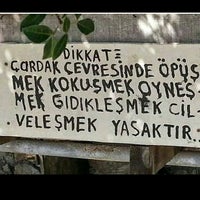 DİKKATE
ÇARDAK ÇEVRESİNDE ÖPÜŞ
MEK KOKUŞMEK OYNEŞ
MEK GIDIKLEŞMEK CİL
VELEŞMEK YASAKTIR..